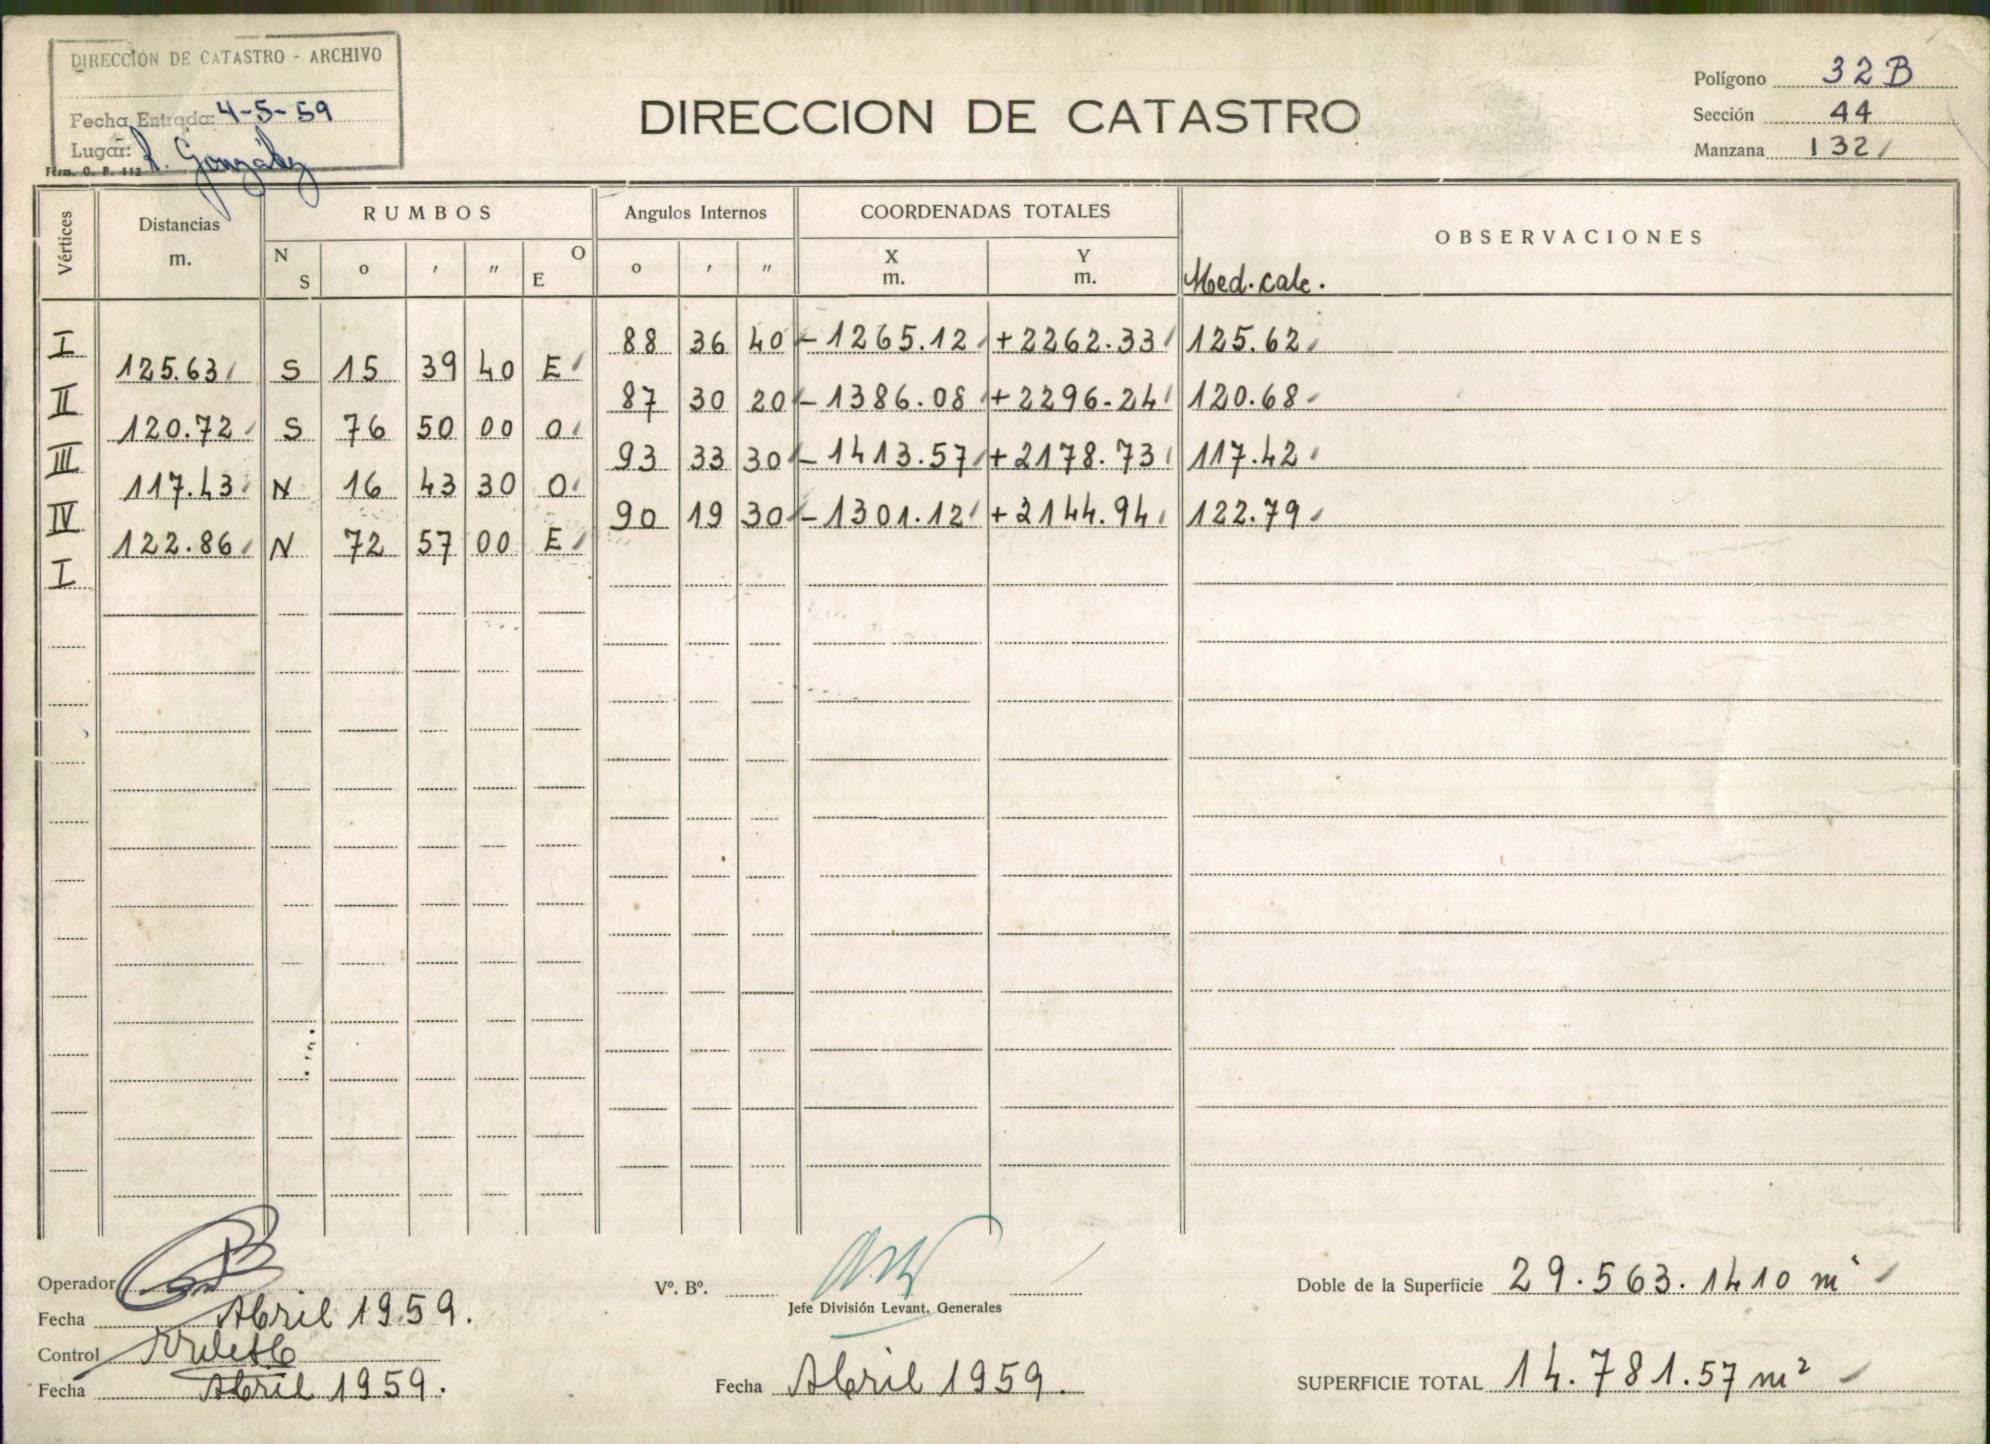 DIRECCIÓN DE CATASTRO - ARCHIVO
Fecha Entrada: 4-5-59
Lugar: R. González
Form. O. P. 112
DIRECCION DE CATASTRO
Polígono 32B
Sección 44
Manzana 132
Vértices Distancias m. RUMBOS Angulos Internos COORDENADAS TOTALES OBSERVACIONES
N S o ' " O E o ' " X m. Y m. Med. calc.
I 88 36 40 - 1265.12 + 2262.33 125.62
125.63 S 15 39 40 E
II 87 30 20 - 1386.08 + 2296.24 120.68
120.72 S 76 50 00 O
III 93 33 30 - 1413.57 + 2178.73 117.42
117.43 N 16 43 30 O
IV 90 19 30 - 1301.12 + 2144.94 122.79
122.86 N 72 57 00 E
I
Operador
Fecha Abril 1959.
Control
Fecha Abril 1959.
Vº. Bº.
Jefe División Levant. Generales
Fecha Abril 1959.
Doble de la Superficie 29.563.1410 m²
SUPERFICIE TOTAL 14.781.57 m²